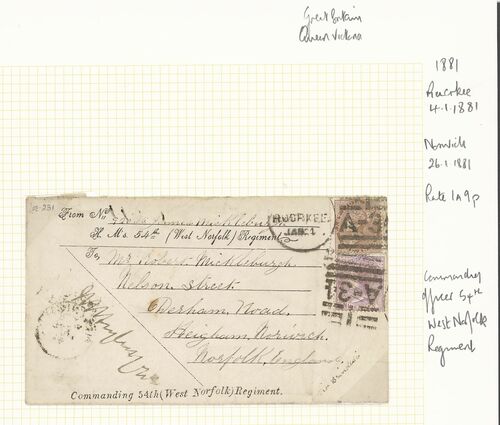 Great Britain
Queen Victoria
1881
Roorkee
4.1.1881
Norwich
26.1.1881
Rate 1A 9p
Commanding
officer 54th
West Norfolk
Regiment
From No.
James Mickleburgh
H. M's 54th (West Norfolk) Regiment
To,
Mr Robert Mickleburgh.
Nelson Street
Derham Road,
Heigham, Norwich.
Norfolk, England
Commanding 54th (West Norfolk) Regiment.
ROORKEE
JAN. 4
A-3
A-31